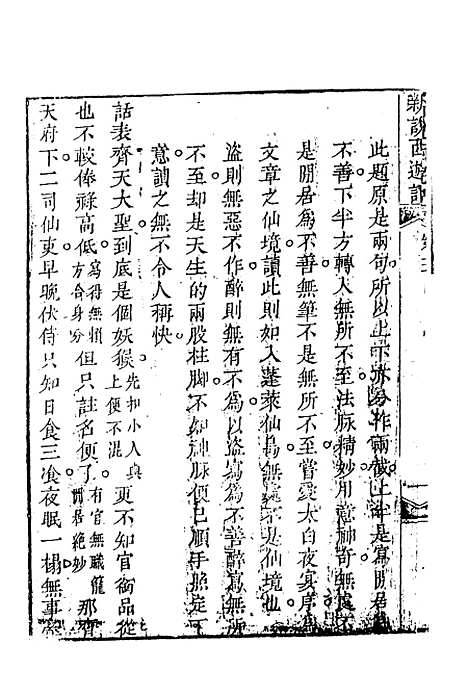 新說西遊記
此題原是兩句所以上下亦分作兩截上半是寫閒居為
不善下半方轉入無所不至法脉精妙用意神奇無處不
是閒居為不善無筆不是無所不至嘗愛太白夜宴序為
文章之仙境讀此則如入蓬萊仙島無處不是仙境也
盜則無惡不作醉則無有不為以盜寫為不善醉寫無所
不至却是天生的兩股柱脚不如神脉便已順手照定下
意讀之無不令人稱快
話表齊天大聖到底是個妖猴先和小人與上便不混更不知官銜品從
也不較俸祿高低寫得無賴方合身分但只註名便了有官無職籠罩居絶妙那齊
天府下二司仙吏早晚伏侍只知日食三飡夜眠一榻無事